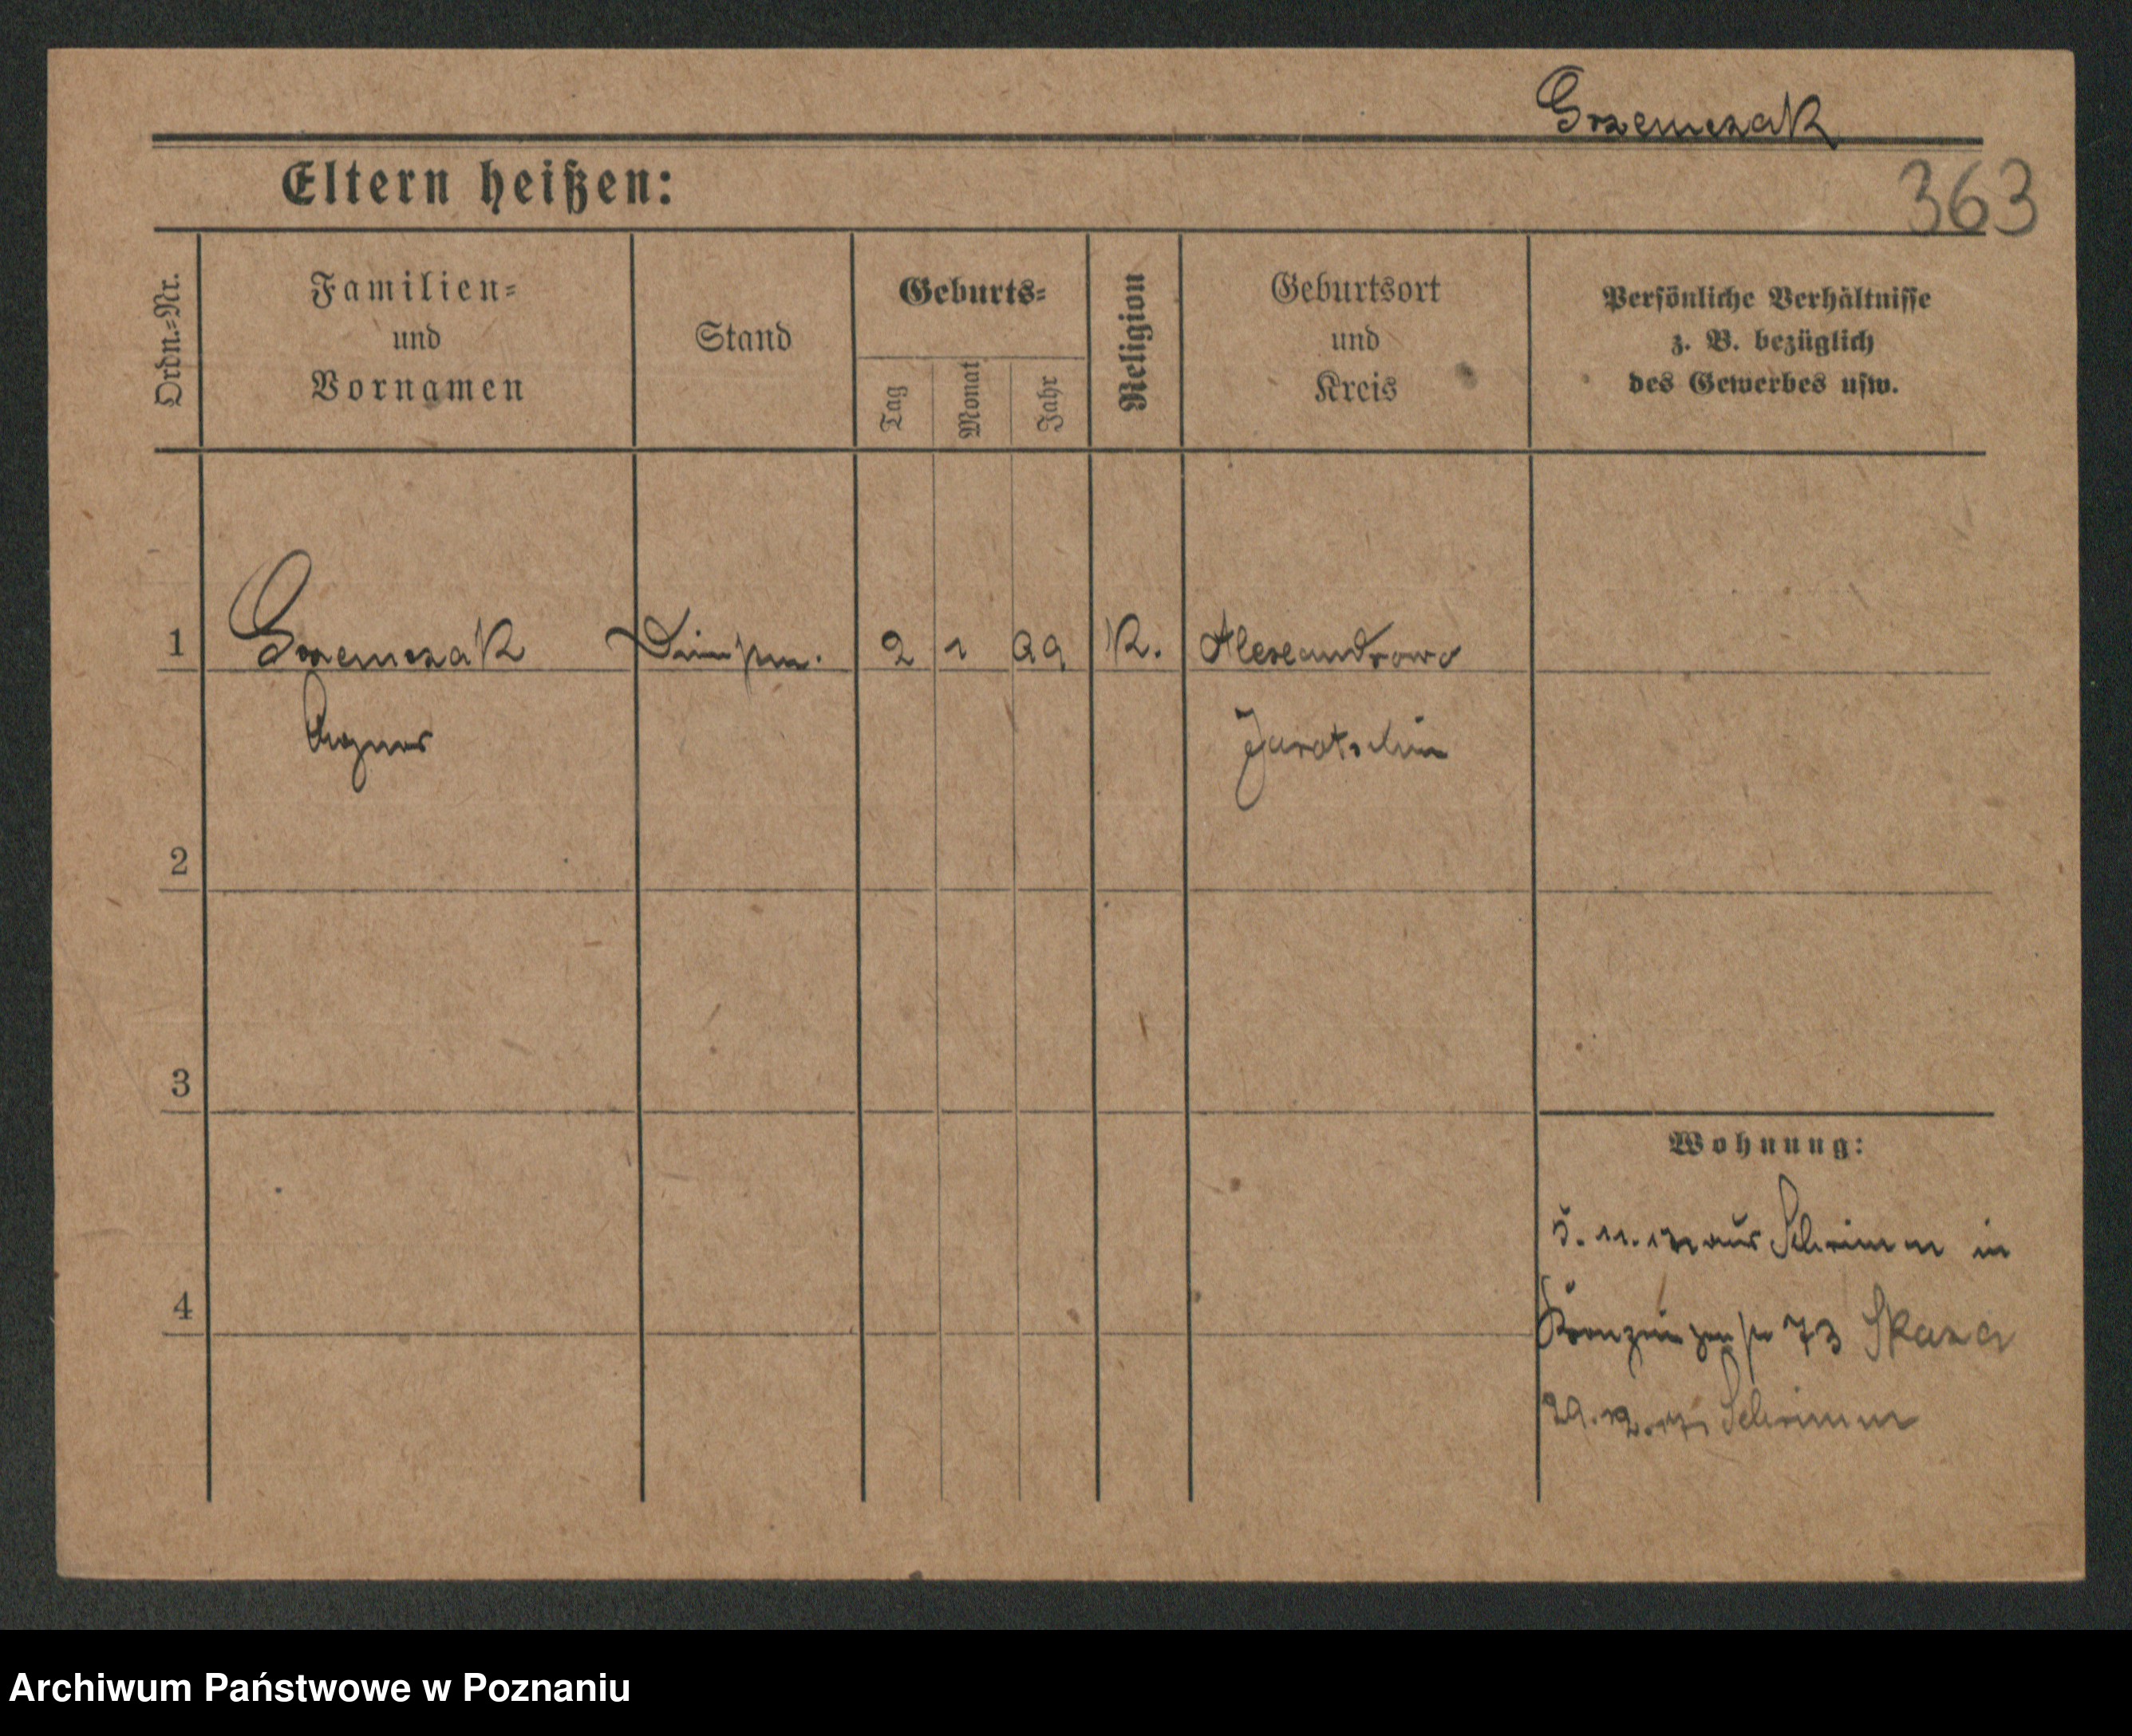 Grzemczak
363
Eltern heißen:
Ordn.=Nr.
Familien=
und
Vornamen
Stand
Geburts=
Tag
Monat
Jahr
Religion
Geburtsort
und
Kreis
Persönliche Verhältnisse
z. B. bezüglich
des Gewerbes usw.
1 Grzemczak 2 1 99 K. Alexandrowo
Agnes Jarotschin
2
3
Wohnung:
5. 11. 17 aus Schrimm in
4
Kronprinzenstr 73 Skaza
29. 12. 17 Schrimm
Archiwum Państwowe w Poznaniu